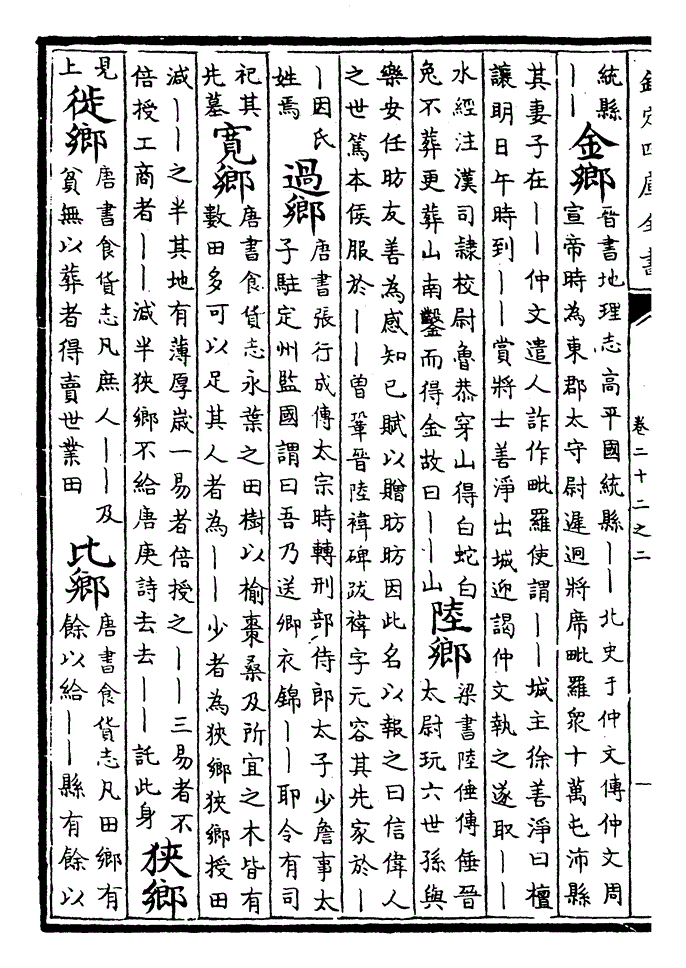 欽定四庫全書
卷二十二之二
統縣
——
金鄉
晉書地理志高平國統縣——北史于仲文傳仲文周
宣帝時為東郡太守尉遲迥將席毗羅衆十萬屯沛縣
其妻子在——仲文遣人詐作毗羅使謂——城主徐善淨曰檀
讓明日午時到——賞將士善淨出城迎謁仲文執之遂取——
水經注漢司隷校尉魯恭穿山得白蛇白
兔不葬更葬山南鑿而得金故曰——山
陸鄉
梁書陸倕傳倕晉
太尉玩六世孫與
樂安任昉友善為感知己賦以贈昉昉因此名以報之曰信偉人
之世篤本侯服於——曾鞏晉陸禕碑跋禕字元容其先家於—
—因氏
姓焉
過鄉
唐書張行成傳太宗時轉刑部侍郎太子少詹事太
子駐定州監國謂曰吾乃送卿衣錦——耶令有司
祀其
先墓
寛鄉
唐書食貨志永葉之田樹以榆棗桑及所宜之木皆有
數田多可以足其人者為——少者為狹鄉狹鄉授田
減——之半其地有薄厚歲一易者倍授之——三易者不
倍授工商者——減半狹鄉不給唐庚詩去去——託此身
狹鄉
見
上
徙鄉
唐書食貨志凡庶人——及
貧無以葬者得賣世業田
比鄉
唐書食貨志凡田鄉有
餘以給——縣有餘以